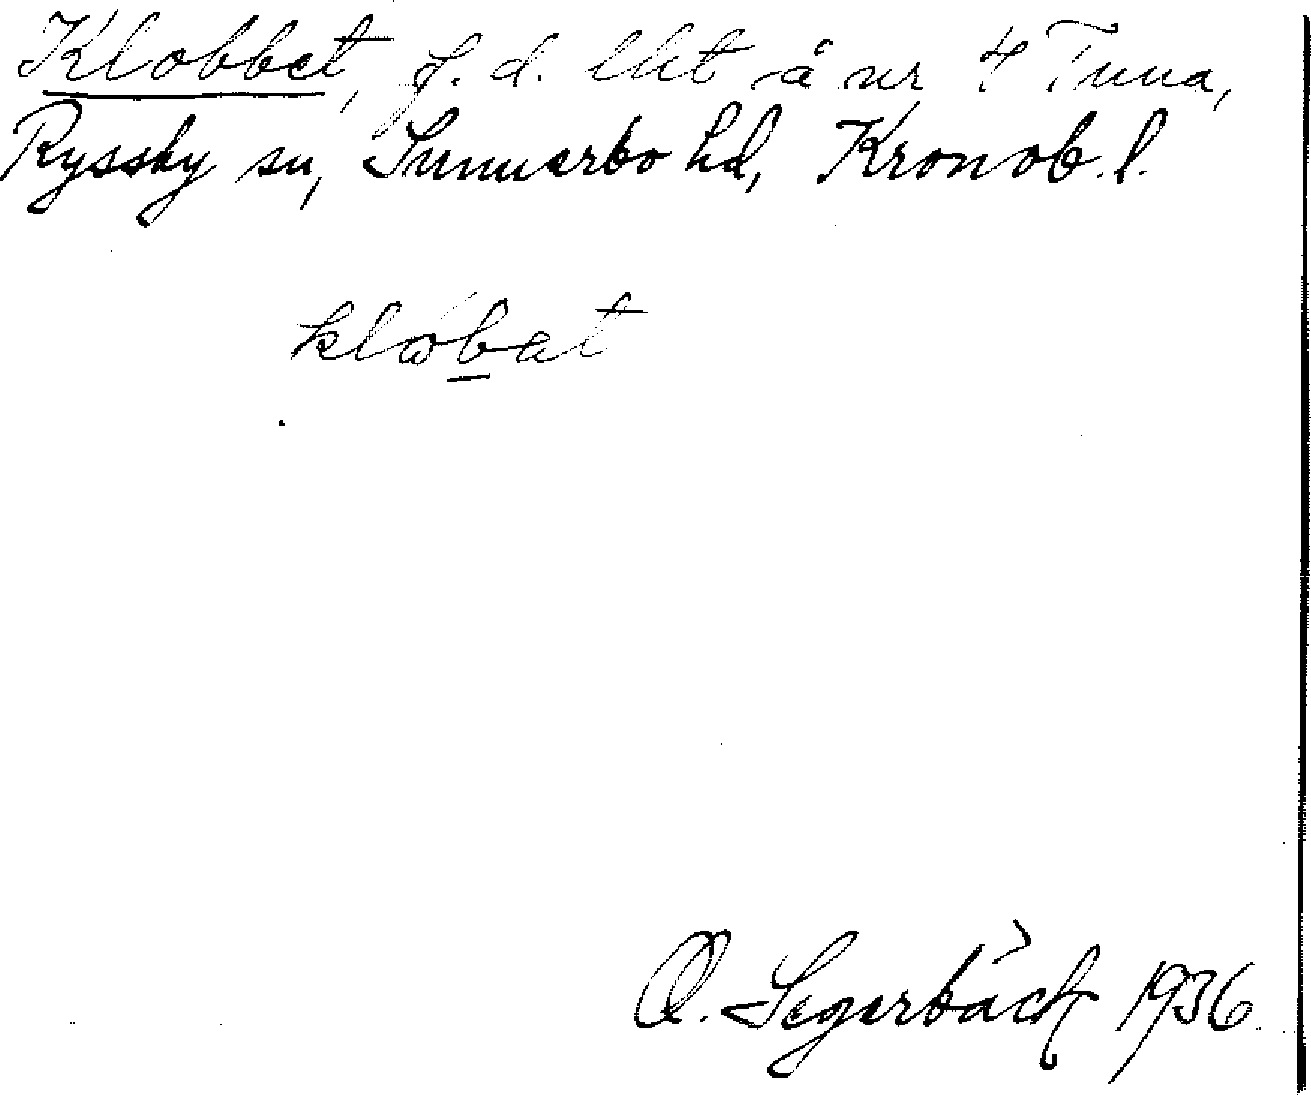 Klobbet, f. d. lht å nr 4 Tuna,
Ryssby sn, Sunnerbo hd, Kronob. l.
klɷ́bat
O. Segerbäck 1936